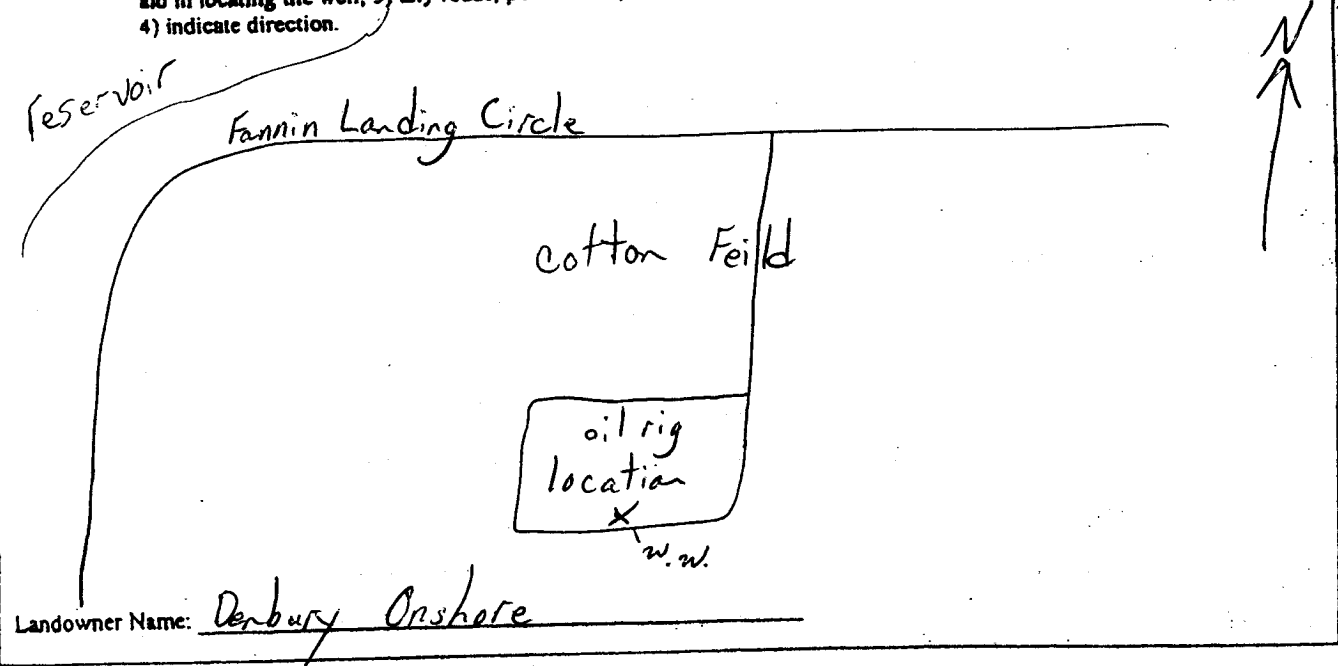 4) indicate direction.
N
reservoir
Fannin Landing Circle
cotton Feild
oil rig
location
X
w.w.
Landowner Name: Denbury Onshore